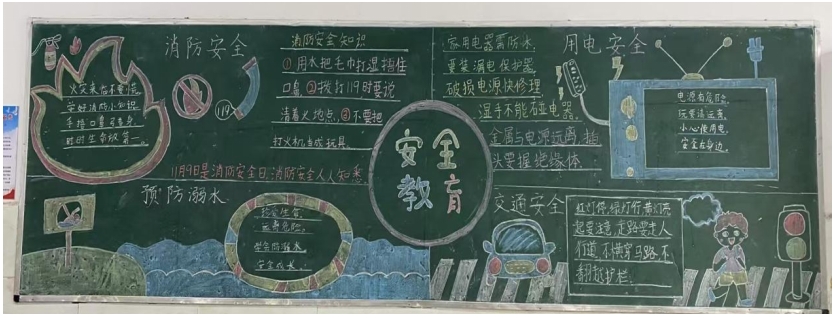 消防安全
火灾来临不要慌
学好消防小知识
手捂口鼻弯着身
时时生命放第一
119
消防安全知识
①用水把毛巾打湿捂住
口鼻②拨打119时要说
清着火地点,③不要把
打火机当成玩具
11月9日是消防安全日,消防安全人人知悉
家用电器需防水
要装漏电保护器
破损电源快修理
湿手不能碰电器
金属与电源远离,插
头要握绝缘体
用电安全
电源有危险
玩耍请远离
小心使用电
安全在身边
安全
教育
预防溺水
珍爱生命
远离危险
安全成长
交通安全
红灯停绿灯行黄灯亮
起要注意,走路要走人
行道,不横穿马路不
翻越护栏